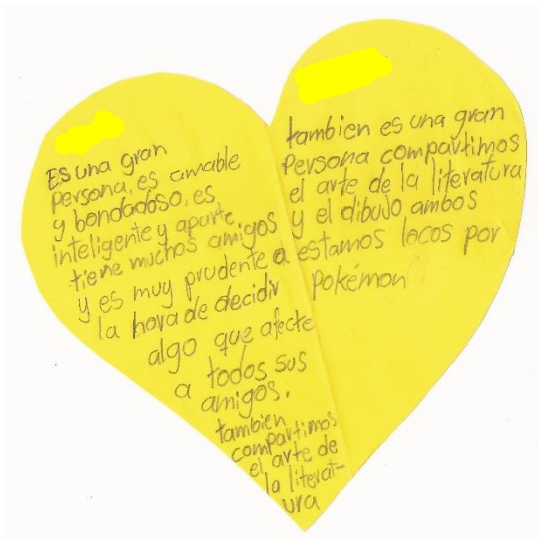 Es una gran
persona, es amable
y bondadoso, es
inteligente y aparte
tiene muchos amigos
y es muy prudente a
la hora de decidir
algo que afecte
a todos sus
amigos.
tambien
compartimos
el arte de
la literat-
ura
tambien es una gran
Persona compartimos
el arte de la literatura
y el dibujo, ambos
estamos locos por
pokémon